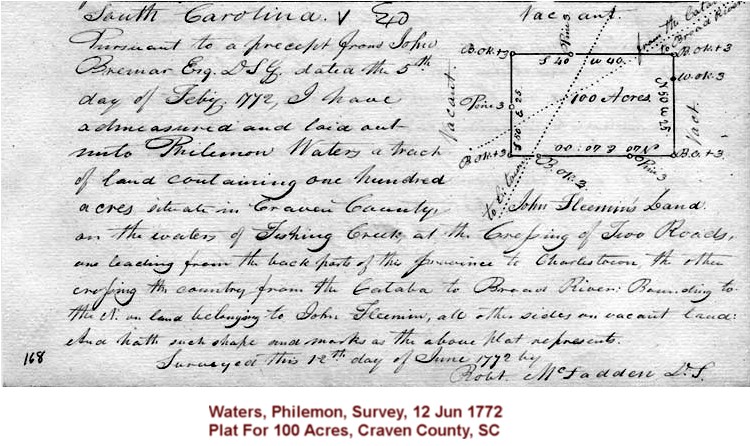 South Carolina.
Pursuant to a precept from John
Bremar Esq. D.S.G. dated the 5th
day of Feby. 1772, I have
admeasured and laid out
unto Philemon Waters a track
of land containing one hundred
acres situate in Craven County,
on the waters of Fishing Creek, at the Crossing of Two Roads,
one leading from the back parts of this province to Charlestown, the other
crossing the country from the Cataba to Broad River: Bounding to
the N. on land belonging to John Fleemin, all other sides on vacant land:
And hath such shape and marks as the above plat represents.
Surveyed this 12th day of June 1772 by
Robt. McFadden D.S.
168
Vacant.
from the Cataba
to Broad River
Pine 3
B.Ok+3
S 40 W 40
B.Ok+3
W.Ok.3
Vacant
Pine 3
S 50 E 25
100 Acres
N 50 W 25
Vact.
B.Ok+3
B.Ok 3
N 40 E 40
Pine 3
B.O+3
John Fleemin's Land
Waters, Philemon, Survey, 12 Jun 1772
Plat For 100 Acres, Craven County, SC